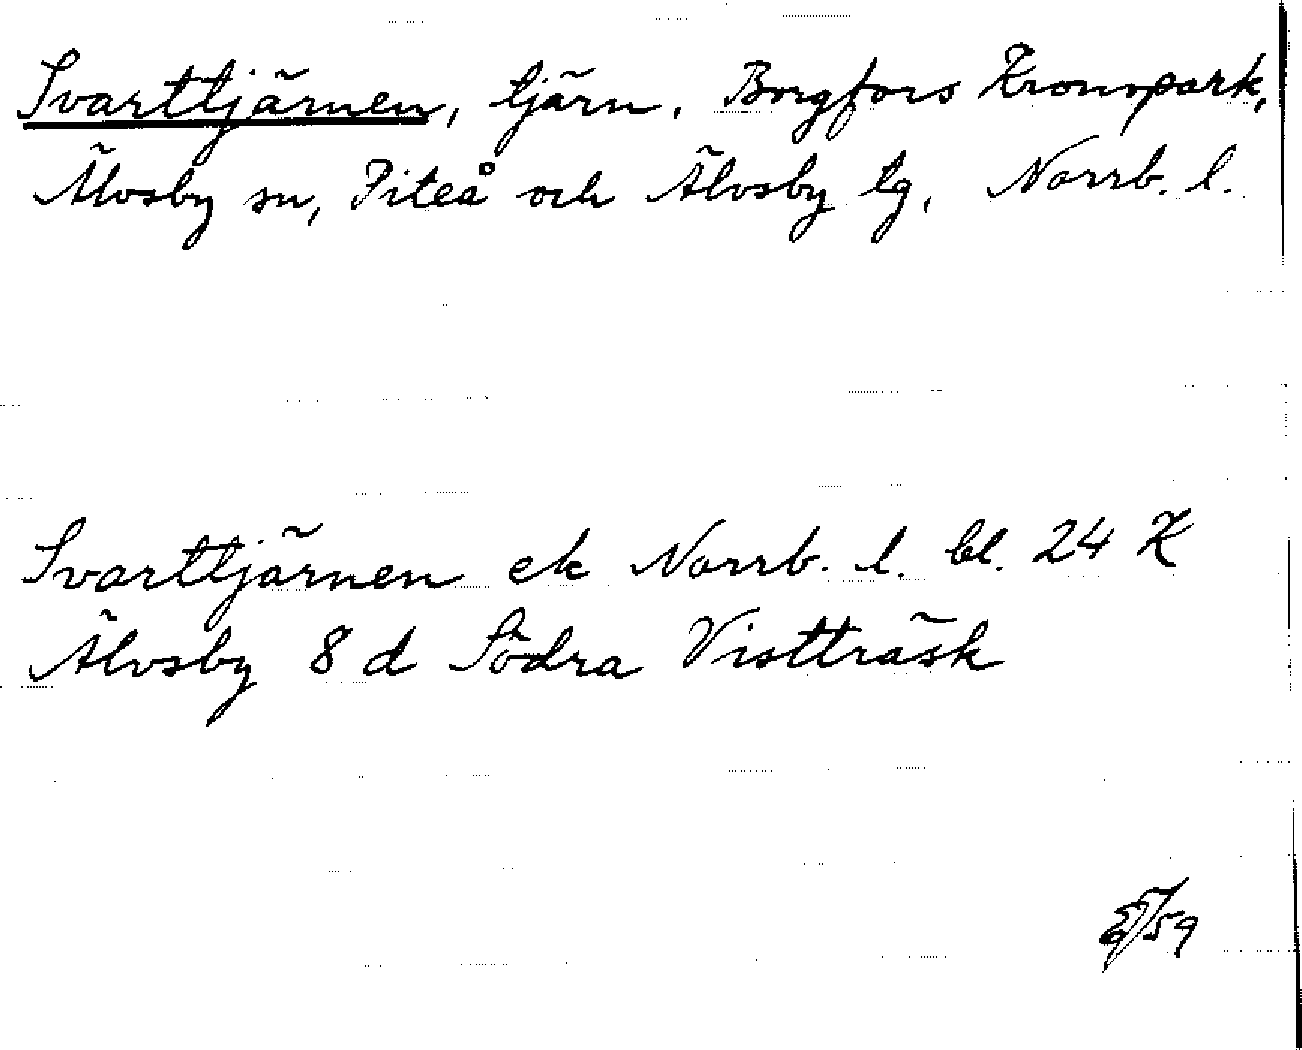 Svarttjärnen, tjärn, Borgfors Kronopark,
Älvsby sn, Piteå och Älvsby tg, Norrb. l.
Svarttjärnen ek Norrb. l. bl. 24 K
Älvsby 8 d Södra Vistträsk
/59